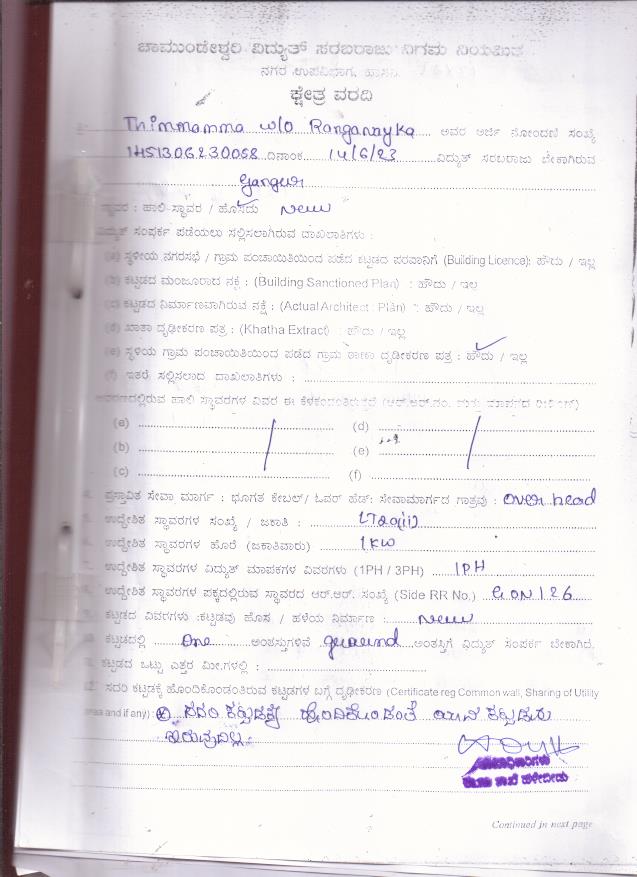 ಚಾಮುಂಡೇಶ್ವರಿ ವಿದ್ಯುತ್ ಸರಬರಾಜು ನಿಗಮ ನಿಯಮಿತ
ನಗರ ಉಪವಿಭಾಗ, ಹಾಸನ
ಕ್ಷೇತ್ರ ವರದಿ
Thimmamma W/O Ranganayka ಅವರ ಅರ್ಜಿ ನೋಂದಣಿ ಸಂಖ್ಯೆ
1HS1306230058 ದಿನಾಂಕ 14/6/23 ವಿದ್ಯುತ್ ಸರಬರಾಜು ಬೇಕಾಗಿರುವ
Ganguri
ಸ್ಥಾವರ : ಹಾಲಿ ಸ್ಥಾವರ / ಹೊಸದು New
ವಿದ್ಯುತ್ ಸಂಪರ್ಕ ಪಡೆಯಲು ಸಲ್ಲಿಸಲಾಗಿರುವ ದಾಖಲಾತಿಗಳು :
(a) ಸ್ಥಳೀಯ ನಗರಸಭೆ / ಗ್ರಾಮ ಪಂಚಾಯಿತಿಯಿಂದ ಪಡೆದ ಕಟ್ಟಡದ ಪರವಾನಿಗೆ (Building Licence): ಹೌದು / ಇಲ್ಲ
(b) ಕಟ್ಟಡದ ಮಂಜೂರಾದ ನಕ್ಷೆ : (Building Sanctioned Plan) : ಹೌದು / ಇಲ್ಲ
(c) ಕಟ್ಟಡದ ನಿರ್ಮಾಣವಾಗಿರುವ ನಕ್ಷೆ : (Actual Architect Plan) : ಹೌದು / ಇಲ್ಲ
(d) ಖಾತಾ ದೃಢೀಕರಣ ಪತ್ರ : (Khatha Extract) : ಹೌದು / ಇಲ್ಲ
(e) ಸ್ಥಳಿಯ ಗ್ರಾಮ ಪಂಚಾಯಿತಿಯಿಂದ ಪಡೆದ ಗ್ರಾಮ ಠಾಣಾ ದೃಢೀಕರಣ ಪತ್ರ : ಹೌದು / ಇಲ್ಲ
(f) ಇತರೆ ಸಲ್ಲಿಸಲಾದ ದಾಖಲಾತಿಗಳು :
ಆವರಣದಲ್ಲಿರುವ ಹಾಲಿ ಸ್ಥಾವರಗಳ ವಿವರ ಈ ಕೆಳಕಂಡಂತಿರುತ್ತದೆ (ಆರ್.ಆರ್.ನಂ. ಮತ್ತು ಮಾಪಕದ
(a) (d)
(b) (e)
(c) (f)
4. ಪ್ರಸ್ತಾವಿತ ಸೇವಾ ಮಾರ್ಗ : ಭೂಗತ ಕೇಬಲ್/ ಓವರ್ ಹೆಡ್: ಸೇವಾಮಾರ್ಗದ ಗಾತ್ರವು : Over head
5. ಉದ್ದೇಶಿತ ಸ್ಥಾವರಗಳ ಸಂಖ್ಯೆ / ಜಕಾತಿ :
6. ಉದ್ದೇಶಿತ ಸ್ಥಾವರಗಳ ಹೊರೆ (ಜಕಾತಿವಾರು) 1KW
7. ಉದ್ದೇಶಿತ ಸ್ಥಾವರಗಳ ವಿದ್ಯುತ್ ಮಾಪಕಗಳ ವಿವರಗಳು (1PH / 3PH) 1PH
8. ಉದ್ದೇಶಿತ ಸ್ಥಾವರಗಳ ಪಕ್ಕದಲ್ಲಿರುವ ಸ್ಥಾವರದ ಆರ್.ಆರ್. ಸಂಖ್ಯೆ (Side RR No.)
9. ಕಟ್ಟಡದ ವಿವರಗಳು :ಕಟ್ಟಡವು ಹೊಸ / ಹಳೆಯ ನಿರ್ಮಾಣ : New
10. ಕಟ್ಟಡದಲ್ಲಿ One ಅಂತಸ್ತುಗಳಿವೆ ground ಅಂತಸ್ತಿಗೆ ವಿದ್ಯುತ್ ಸಂಪರ್ಕ ಬೇಕಾಗಿದೆ.
11. ಕಟ್ಟಡದ ಒಟ್ಟು ಎತ್ತರ ಮೀ.ಗಳಲ್ಲಿ :
12. ಸದರಿ ಕಟ್ಟಡಕ್ಕೆ ಹೊಂದಿಕೊಂಡಂತಿರುವ ಕಟ್ಟಡಗಳ ಬಗ್ಗೆ ದೃಢೀಕರಣ (Certificate reg Common wall, Sharing of Utility
area and if any) : ಸದರಿ ಕಟ್ಟಡಕ್ಕೆ ಹೊಂದಿಕೊಂಡಂತೆ ಯಾವ ಕಟ್ಟಡವು
ಇರುವುದಿಲ್ಲ.
Continued in next page